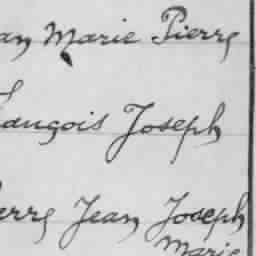 an Marie Pierre
François Joseph
erre Jean Joseph
Marie